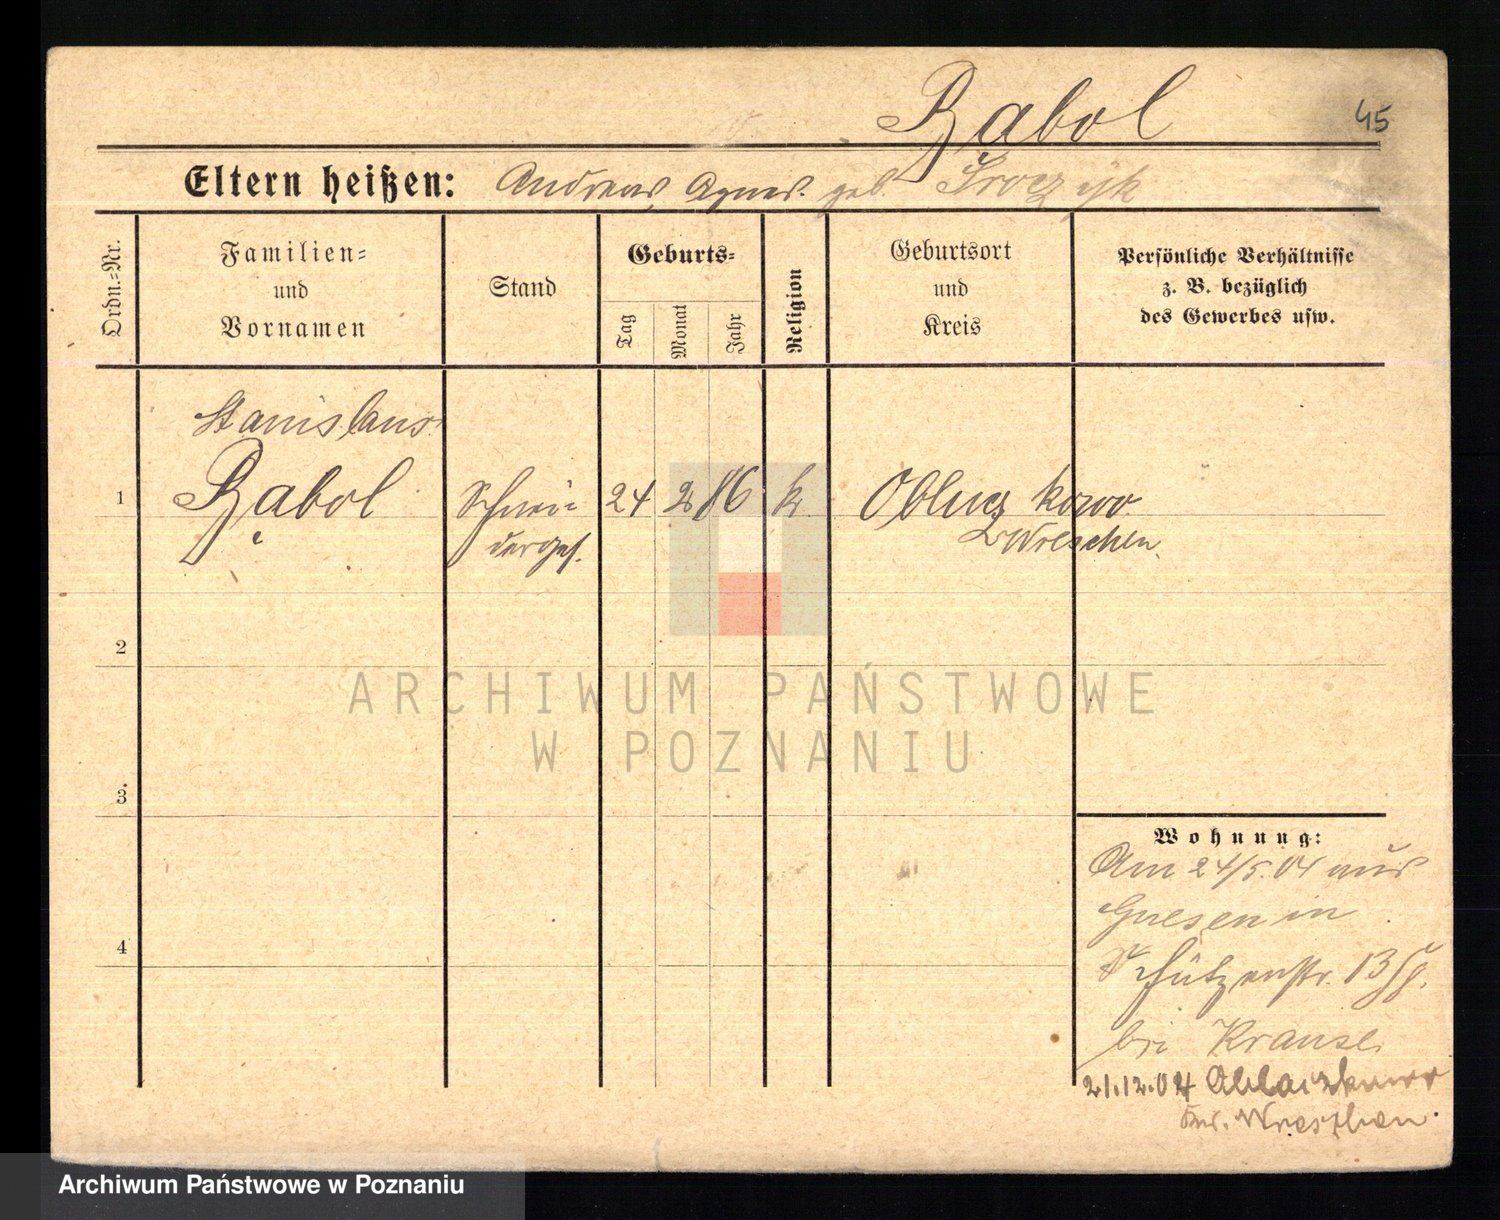 Rąbol
45
Eltern heißen: Andreas, Agnes geb. Troczyk
Ordn.-Nr.
Familien-
und
Vornamen
Stand
Geburts-
Tag
Monat
Jahr
Religion
Geburtsort
und
Kreis
Persönliche Verhältnisse
z. B. bezüglich
des Gewerbes usw.
Stanislaus
1 Rąbol Schnei- 24 2 86 k.
derges. Wreschen.
2
3
4
Wohnung:
Am 24/5. 04 aus
Gnesen in
Schützenstr. 13
bei Krause
21.12.04
Wreschen.
ARCHIWUM PAŃSTWOWE
W POZNANIU
Archiwum Państwowe w Poznaniu